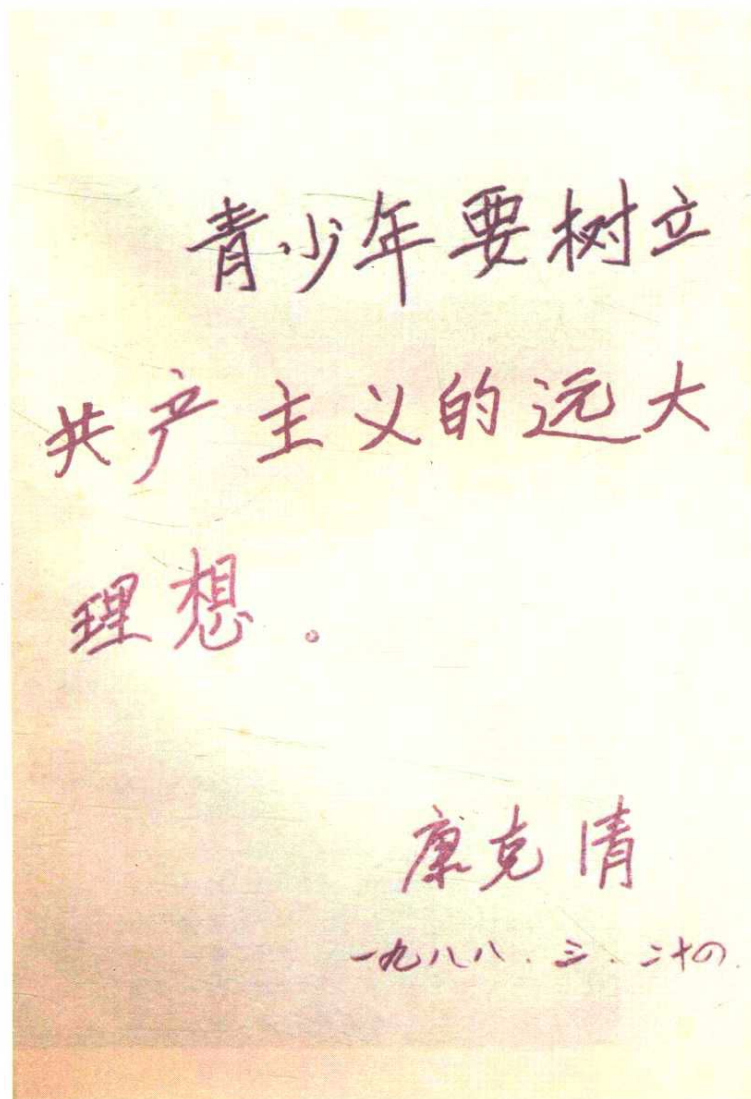 青少年要树立
共产主义的远大
理想。
康克清
一九八八.三.二十四.